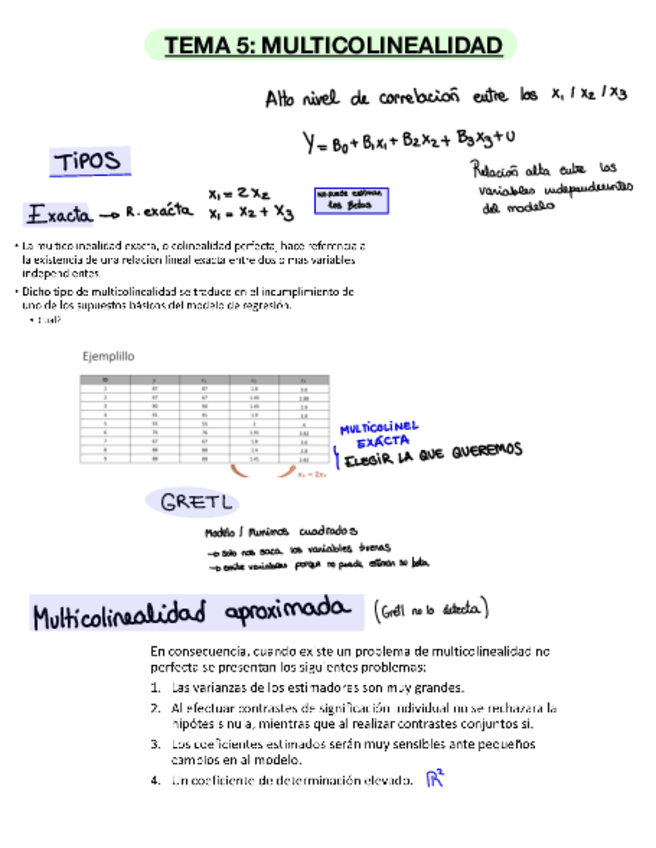 TEMA 5: MULTICOLINEALIDAD
Alto nivel de correlación entre las x₁ / x₂ / x₃
Y = B₀ + B₁x₁ + B₂x₂ + B₃x₃ + U
TIPOS
Relación alta entre las
variables independientes
del modelo
Exacta → R. exácta
x₁ = 2x₂
x₁ = x₂ + x₃
no puede estimar
los Betas
• La multicolinealidad exacta, o colinealidad perfecta, hace referencia a
la existencia de una relación lineal exacta entre dos o mas variables
independientes.
• Dicho tipo de multicolinealidad se traduce en el incumplimiento de
uno de los supuestos básicos del modelo de regresión.
• Cual?
Ejemplillo
MULTICOLINEL
EXÁCTA
ELEGIR LA QUE QUEREMOS
GRETL
Modelo / Mínimos cuadrados
→ solo nos saca las variables buenas
→ omite variables porque no puede estimar su beta
Multicolinealidad aproximada (Gretl no lo detecta)
En consecuencia, cuando existe un problema de multicolinealidad no
perfecta se presentan los siguientes problemas:
1. Las varianzas de los estimadores son muy grandes.
2. Al efectuar contrastes de significación individual no se rechazara la
hipótesis nula, mientras que al realizar contrastes conjuntos si.
3. Los coeficientes estimados serán muy sensibles ante pequeños
cambios en al modelo.
4. Un coeficiente de determinación elevado. R²